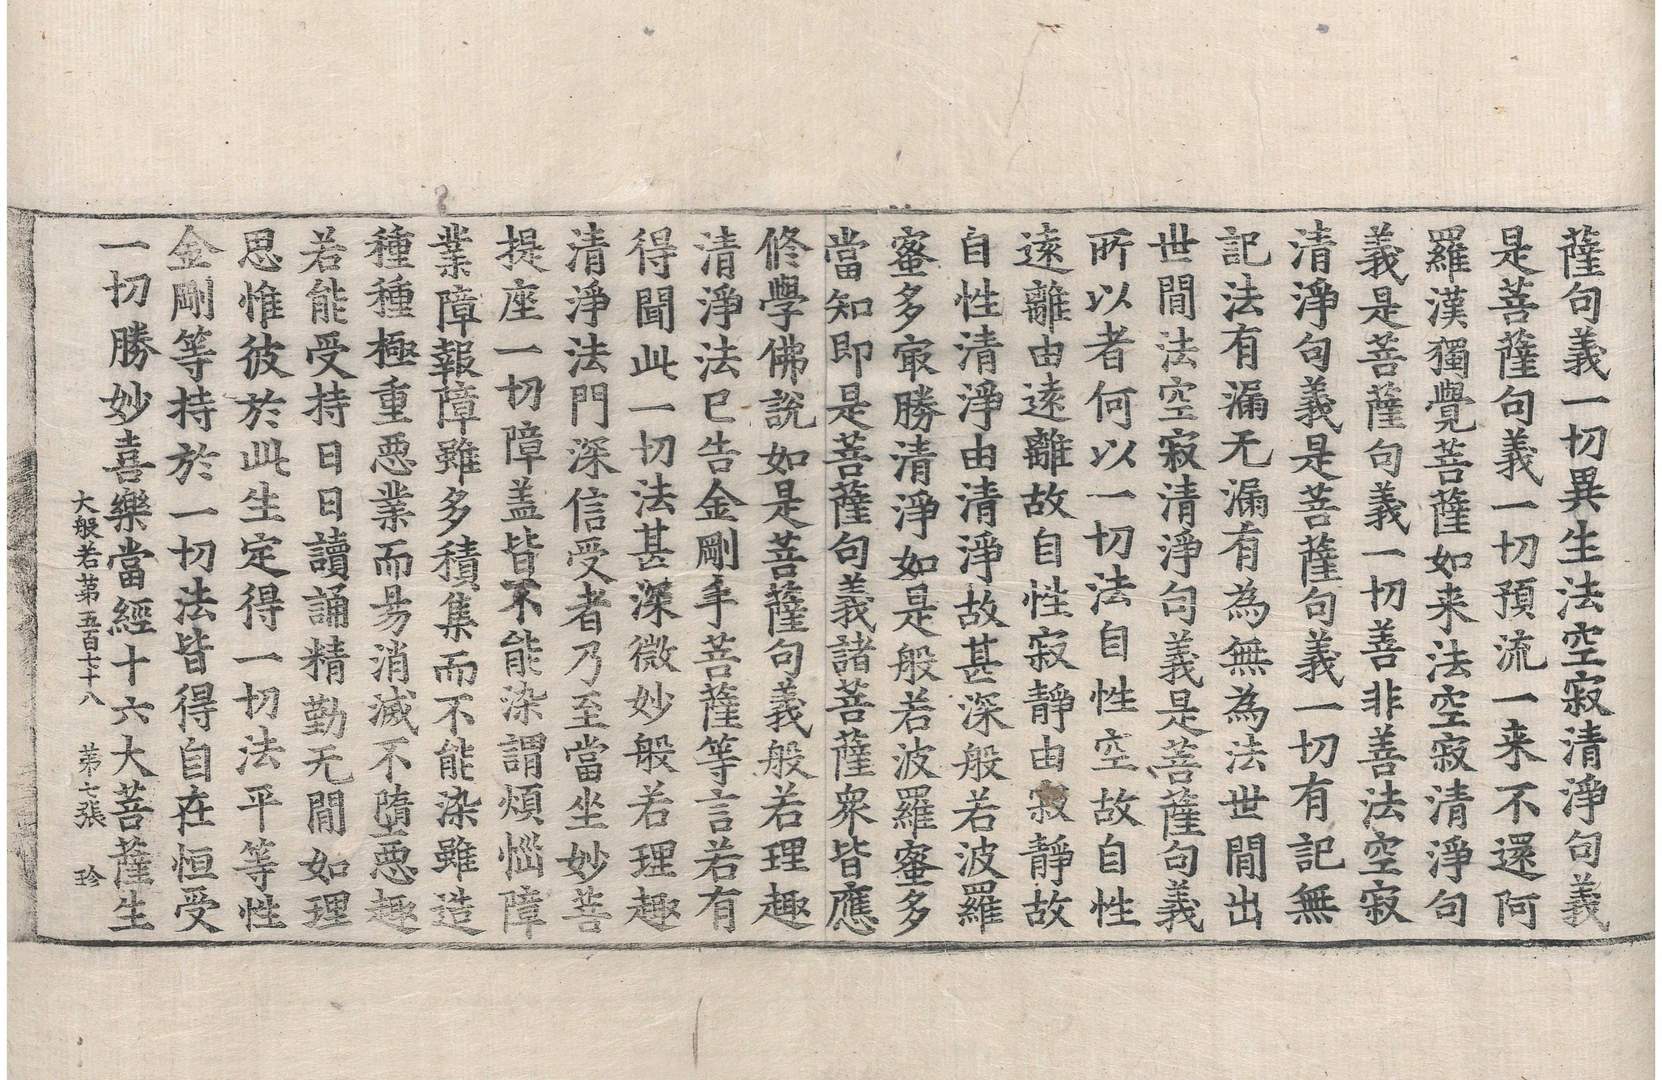 薩句義一切異生法空寂清淨句義
是菩薩句義一切預流一来不還阿
羅漢獨覺菩薩如来法空寂清淨句
義是菩薩句義一切善非善法空寂
清淨句義是菩薩句義一切有記無
記法有漏无漏有為無為法世閒出
世閒法空寂清淨句義是菩薩句義
所以者何以一切法自性空故自性
遠離由遠離故自性寂靜由寂靜故
自性清淨由清淨故甚深般若波羅
蜜多㝡勝清淨如是般若波羅蜜多
當知即是菩薩句義諸菩薩衆皆應
修學佛說如是菩薩句義般若理趣
清淨法已告金剛手菩薩等言若有
得聞此一切法甚深微妙般若理趣
清淨法門深信受者乃至當坐妙菩
提座一切障盖皆不能染謂煩惱障
業障報障雖多積集而不能染雖造
種種極重惡業而易消滅不墮惡趣
若能受持日日讀誦精勤无閒如理
思惟彼於此生定得一切法平等性
金剛等持於一切法皆得自在恒受
一切勝妙喜樂當經十六大菩薩生
大般若第五百七十八 第七張 珍